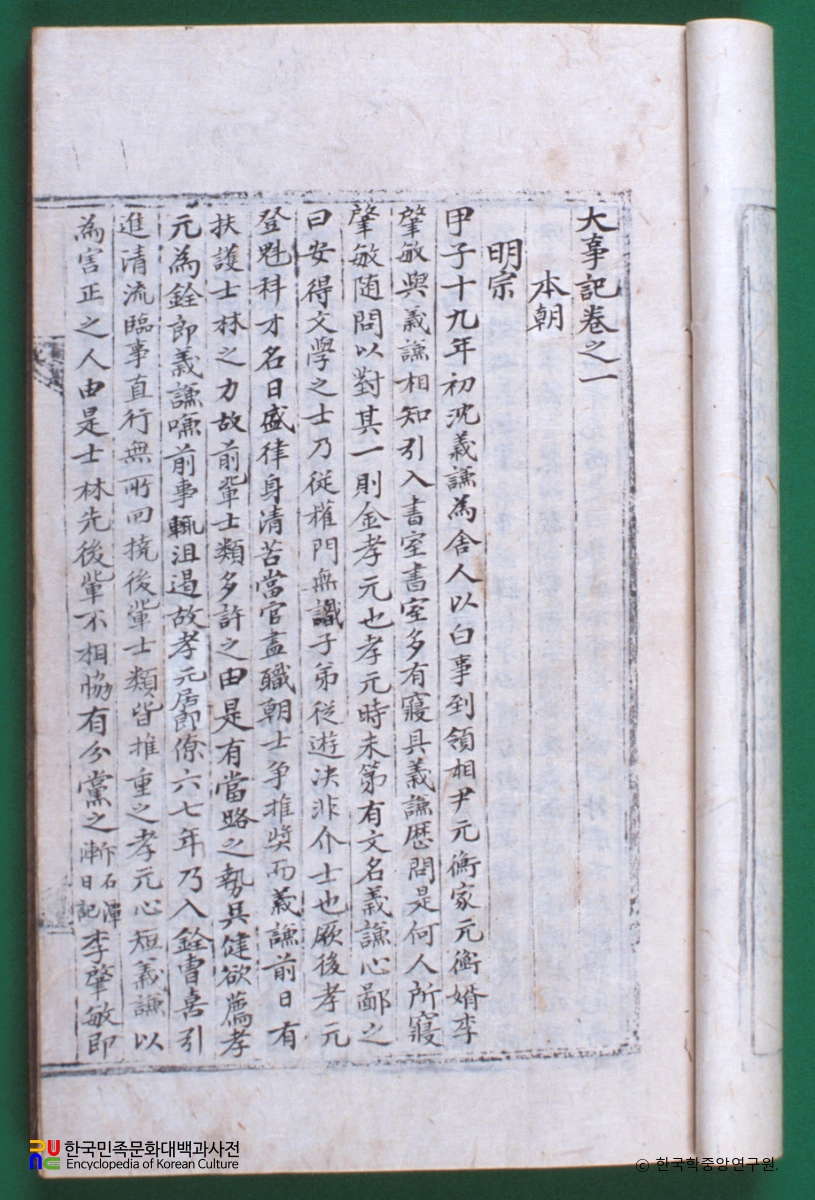 大事記卷之一
本朝
明宗
甲子十九年初沈義謙為舍人以白事到領相尹元衡家元衡婿李
肇敏與義謙相知引入書室書室多有寢具義謙歷問是何人所寢
肇敏随問以對其一則金孝元也孝元時未第有文名義謙心鄙之
曰安得文學之士乃從權門無識子弟從遊决非介士也厥後孝元
登魁科才名日盛律身清苦當官盡職朝士争推奬而義謙前日有
扶護士林之力故前輩士類多許之由是有當路之勢吳健欲薦孝
元為銓郎義謙嗛前事輒沮遏故孝元居郎僚六七年乃入銓曹喜引
進清流臨事直行無所回撓後輩士類皆推重之孝元心短義謙以
為害正之人由是士林先後輩不相恊有分黨之漸石潭日記李肇敏即
한국민족문화대백과사전
Encyclopedia of Korean Culture
© 한국학중앙연구원.